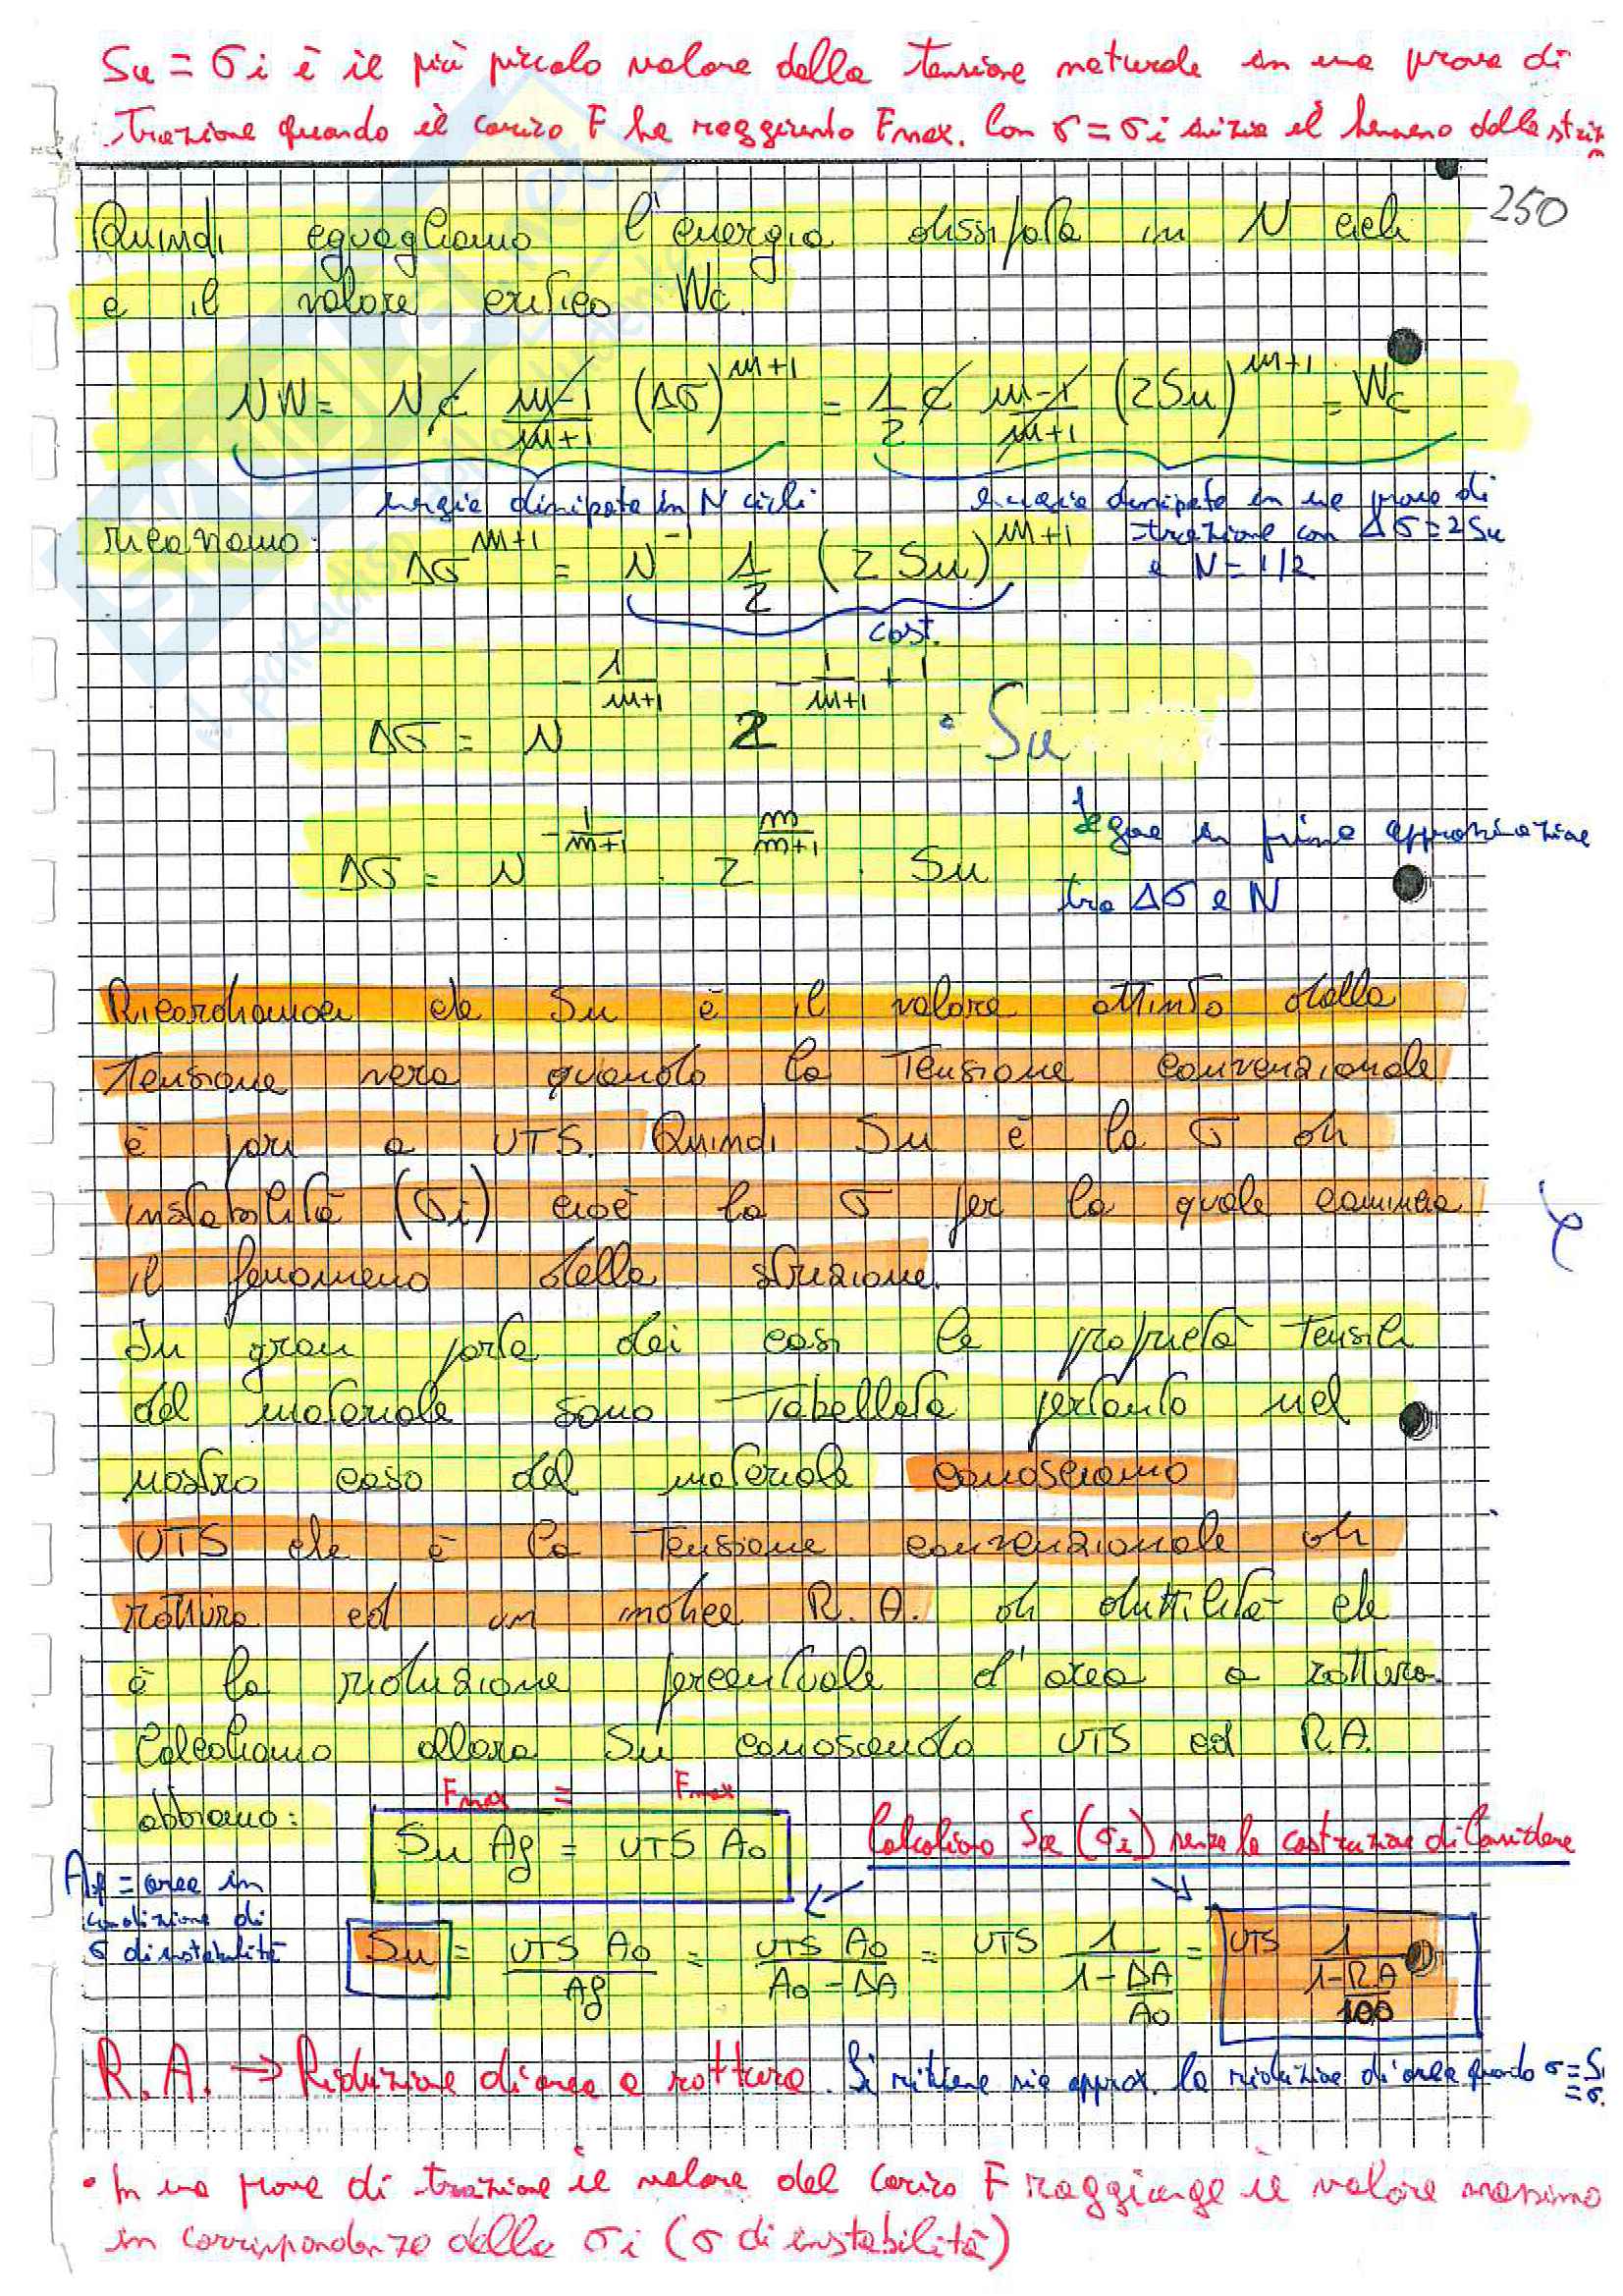 Su = σi è il più piccolo valore della tensione naturale in una prova di
trazione quando il carico F ha raggiunto Fmax. Con σ = σi inizia il fenomeno della
250
Quindi eguagliamo l'energia dissipata in N cicli
e il valore critico Wc.
NW = N c (m-1)/(m+1) (Δσ)^(m+1) = 1/2 c (m-1)/(m+1) (2Su)^(m+1) = Wc
energia dissipata in N cicli
energia dissipata in una prova di
trazione con Δσ = 2Su
e N = 1/2
ricaviamo:
Δσ^(m+1) = N^(-1) 1/2 (2 Su)^(m+1)
cost.
Δσ = N^(-1/(m+1)) 2^(-1/(m+1) + 1) · Su
Δσ = N^(-1/(m+1)) · 2^(m/(m+1)) · Su
legge in prima approssimazione
tra Δσ e N
Ricordiamoci che Su è il valore attinto dalla
Tensione vera quando la Tensione convenzionale
è pari a UTS. Quindi Su è la σ di
instabilità (σi) cioè la σ per la quale comincia
il fenomeno della strizione.
In gran parte dei casi le proprietà Tensili
del materiale sono Tabellate pertanto nel
nostro caso del materiale conosciamo
UTS che è la Tensione convenzionale di
rottura ed un indice R.A. di duttilità che
è la riduzione percentuale d'area a rottura.
Calcoliamo allora Su conoscendo UTS ed R.A.
Fmax = Fmax
abbiamo:
Su Af = UTS A0
Calcoliamo Su (σi) senza la costruzione di Considere
Af = area in
condizione di
σ di instabilità
Su = UTS A0 / Af = UTS A0 / (A0 - ΔA) = UTS 1/(1 - ΔA/A0) = UTS 1/(1 - R.A/100)
R.A. → Riduzione di area a rottura. Si ritiene sia approx. la riduzione di area quando σ = S
= σ
• In una prova di trazione il valore del carico F raggiunge il valore massimo
in corrispondenza della σi (σ di instabilità)